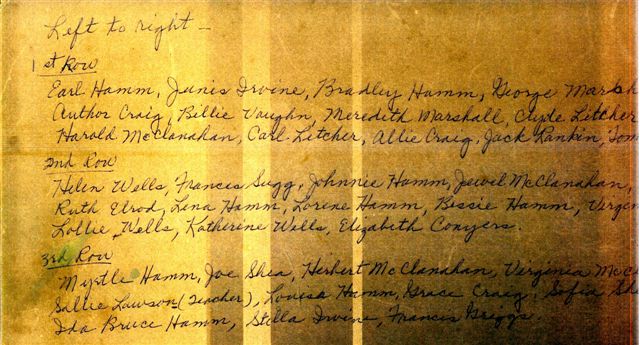 Left to right —
1st Row
Earl Hamm, Junis Irvine, Bradley Hamm, George Marsh
Author Craig, Billie Vaughn, Meredith Marshall, Clyde Letcher
Harold McClanahan, Carl Letcher, Allie Craig, Jack Rankin, Tom
2nd Row
Helen Wells, Francis Sugg, Johnnie Hamm, Jewel McClanahan,
Ruth Elrod, Lena Hamm, Lorene Hamm, Bessie Hamm, Virgin
Lollie Wells, Katherine Wells, Elizabeth Conyers.
3rd Row
Myrtle Hamm, Joe Shea, Herbert McClanahan, Virginia McC
Sallie Lawson (Teacher), Louisa Hamm, Grace Craig, Sofia She
Ida Bruce Hamm, Stella Irvine, Francis Briggs.